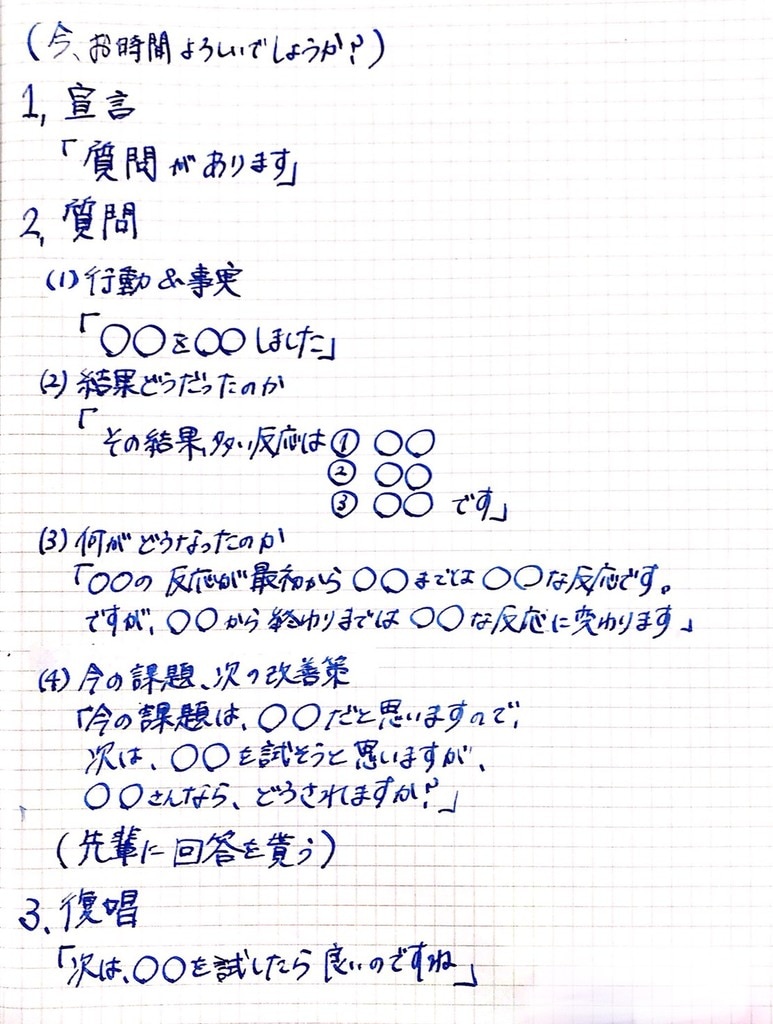 (今、お時間よろしいでしょうか?)
1, 宣言
「質問があります」
2, 質問
(1) 行動&事実
「〇〇を〇〇しました」
(2) 結果どうだったのか
「その結果、多い反応は① 〇〇
② 〇〇
③ 〇〇 です」
(3) 何がどうなったのか
「〇〇の反応が最初から〇〇までは〇〇な反応です。
ですが、〇〇から終わりまでは〇〇な反応に変わります」
(4) 今の課題、次の改善策
「今の課題は、〇〇だと思いますので、
次は、〇〇を試そうと思いますが、
〇〇さんなら、どうされますか?」
(先輩に回答を貰う)
3. 復唱
「次は、〇〇を試したら良いのですね」